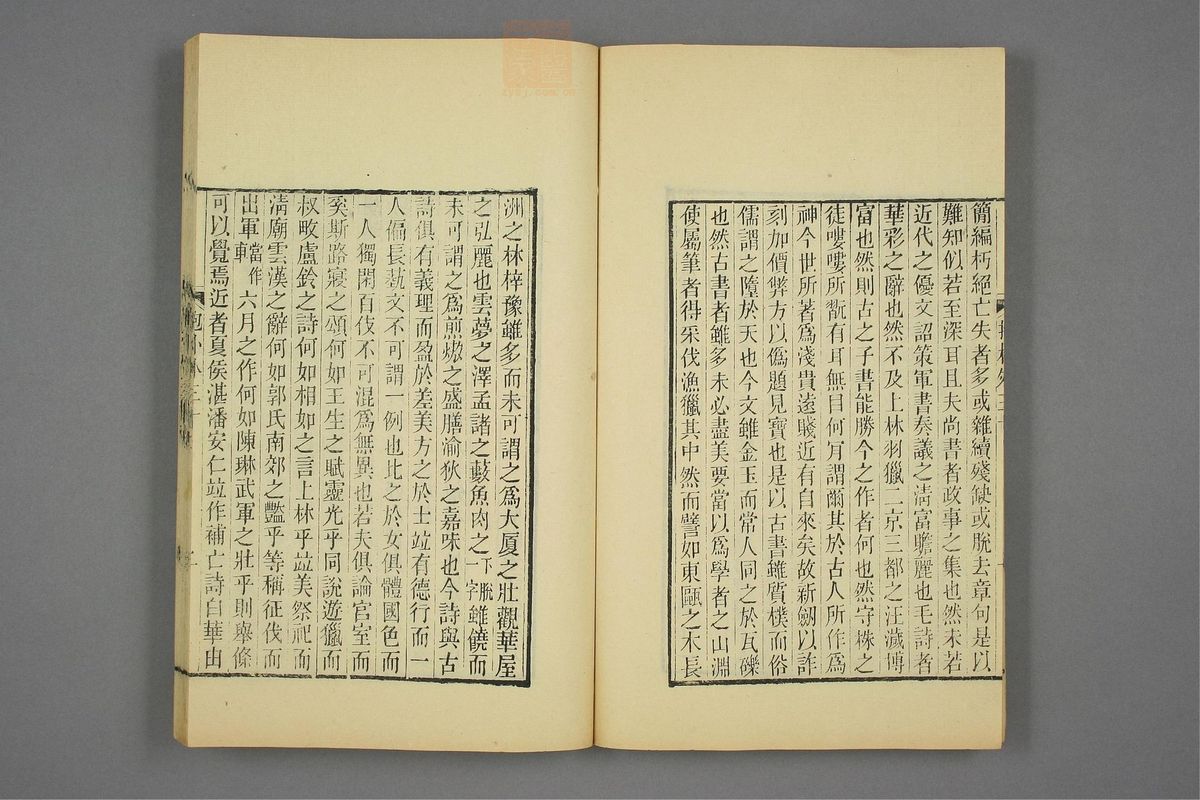 簡編朽絕亡失者多或雜續殘缺或脫去章句是以
難知似若至深耳且夫尚書者政事之集也然未若
近代之優文詔策軍書奏議之清富贍麗也毛詩者
華彩之辭也然不及上林羽獵二京三都之汪濊博
富也然則古之子書能勝今之作者何也然守株之
徒嘍嘍所翫有耳無目何肎謂爾其於古人所作為
神今世所著為淺貴遠賤近有自來矣故新劒以詐
刻加價弊方以偽題見寶也是以古書雖質樸而俗
儒謂之墮於天也今文雖金玉而常人同之於瓦礫
也然古書者雖多未必盡美要當以為學者之山淵
使屬筆者得采伐漁獵其中然而譬如東甌之木長
洲之林梓豫雖多而未可謂之為大厦之壯觀華屋
之弘麗也雲夢之澤孟諸之藪魚肉之下脫一字雖饒而
未可謂之為煎熬之盛膳渝狄之嘉味也今詩與古
詩俱有義理而盈於差美方之於士竝有德行而一
人偏長藝文不可謂一例也比之於女俱體國色而
一人獨閑百伎不可混為無異也若夫俱論宮室而
奚斯路寢之頌何如王生之賦靈光乎同說遊獵而
叔畋盧鈴之詩何如相如之言上林乎竝美祭祀而
清廟雲漢之辭何如郭氏南郊之豔乎等稱征伐而
出軍當作車六月之作何如陳琳武軍之壯乎則舉條
可以覺焉近者夏侯湛潘安仁竝作補亡詩白華由
zysj.com.cn